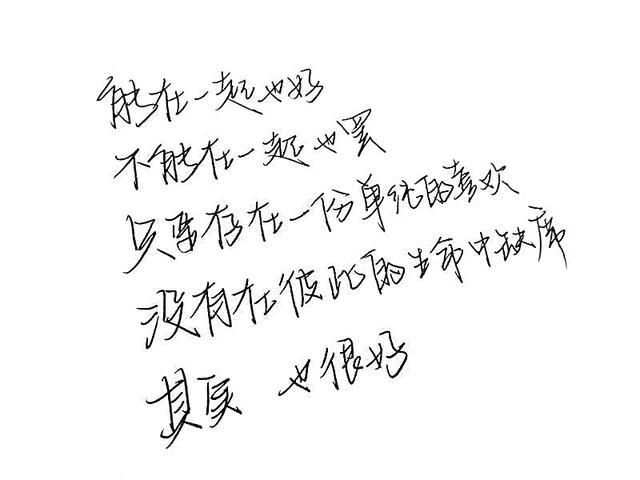 能在一起也好
不能在一起也罢
只要存在一份单纯的喜欢
没有在彼此的生命中缺席
其实 也很好